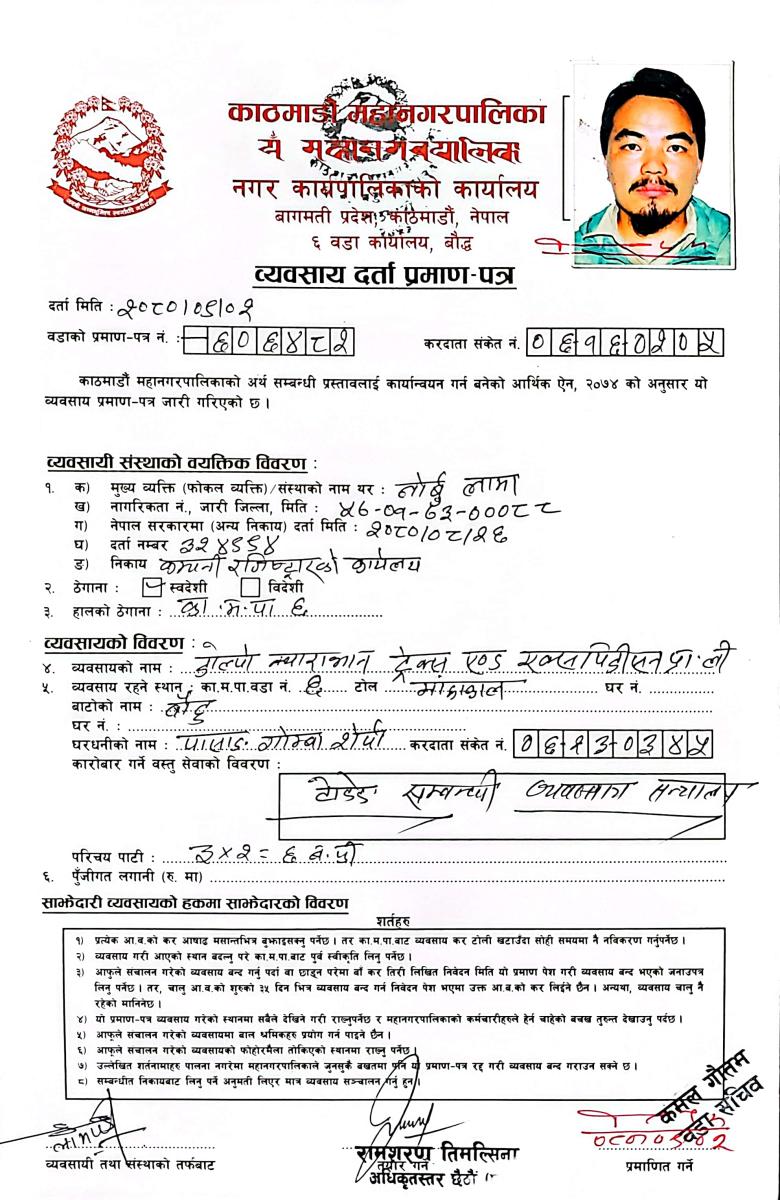 काठमाडौं महानगरपालिका
नगर कार्यपालिकाको कार्यालय
बागमती प्रदेश, काठमाडौं, नेपाल
६ वडा कार्यालय, बौद्ध
व्यवसाय दर्ता प्रमाण-पत्र
दर्ता मिति : २०८०।०९।०२
वडाको प्रमाण-पत्र नं. : ६०६४८२ करदाता संकेत नं.
काठमाडौं महानगरपालिकाको अर्थ सम्बन्धी प्रस्तावलाई कार्यान्वयन गर्न बनेको आर्थिक ऐन, २०७४ को अनुसार यो
व्यवसाय प्रमाण-पत्र जारी गरिएको छ ।
व्यवसायी संस्थाको वयक्तिक विवरण :
१. क) मुख्य व्यक्ति (फोकल व्यक्ति)/संस्थाको नाम थर : नोर्बु लामा
ख) नागरिकता नं., जारी जिल्ला, मिति :
ग) नेपाल सरकारमा (अन्य निकाय) दर्ता मिति : २०८०/०८/२६
घ) दर्ता नम्बर
ङ) निकाय कम्पनी रजिष्ट्रारको कार्यलय
२. ठेगाना : स्वदेशी विदेशी
३. हालको ठेगाना : का.म.पा ६
व्यवसायको विवरण :
४. व्यवसायको नाम : ट्रेक्स एण्ड एक्सपिडिसन प्रा.ली
५. व्यवसाय रहने स्थान : का.म.पा.वडा नं. ६ टोल घर नं.
बाटोको नाम :
घर नं. :
घरधनीको नाम : करदाता संकेत नं.
कारोबार गर्ने वस्तु सेवाको विवरण :
सम्बन्धी
परिचय पाटी : ३×२=६ ब.फी
६. पुँजीगत लगानी (रु. मा)
साझेदारी व्यवसायको हकमा साझेदारको विवरण
शर्तहरु
१) प्रत्येक आ.ब.को कर आषाढ मसान्तभित्र बुझाइसक्नु पर्नेछ । तर का.म.पा.बाट व्यवसाय कर टोली खटाउँदा सोही समयमा नै नविकरण गर्नुपर्नेछ ।
२) व्यवसाय गरी आएको स्थान बदल्नु परे का.म.पा.बाट पुर्व स्वीकृति लिनु पर्नेछ ।
३) आफुले संचालन गरेको व्यवसाय बन्द गर्नु पर्दा वा छाड्न परेमा बाँकी कर तिरी लिखित निवेदन मिति यो प्रमाण पेश गरी व्यवसाय बन्द भएको जनाउपत्र
लिनु पर्नेछ । तर, चालु आ.ब.को शुरुको ३५ दिन भित्र व्यवसाय बन्द गर्न निवेदन पेश भएमा उक्त आ.ब.को कर लिईने छैन । अन्यथा, व्यवसाय चालु नै
रहेको मानिनेछ ।
४) यो प्रमाण-पत्र व्यवसाय गरेको स्थानमा सबैले देखिने गरी राख्नुपर्नेछ र महानगरपालिकाको कर्मचारीहरुले हेर्न चाहेको बखत तुरुन्त देखाउनु पर्दछ ।
५) आफुले संचालन गरेको व्यवसायमा बाल श्रमिकहरु प्रयोग गर्न पाइने छैन ।
६) आफुले संचालन गरेको व्यवसायको फोहोरमैला तोकिएको स्थानमा राख्नु पर्नेछ ।
७) उल्लेखित शर्तनामाहरु पालना नगरेमा महानगरपालिकाले जुनसुकै बखतमा पनि यो प्रमाण-पत्र रद्द गरी व्यवसाय बन्द गराउन सक्ने छ ।
८) सम्बन्धीत निकायबाट लिनु पर्ने अनुमती लिएर मात्र व्यवसाय सञ्चालन गर्नु हुन ।
कमल गौतम
वडा सचिव
रामशरण तिमल्सिना
व्यवसायी तथा संस्थाको तर्फबाट तयार गर्ने प्रमाणित गर्ने
अधिकृतस्तर छैटौं